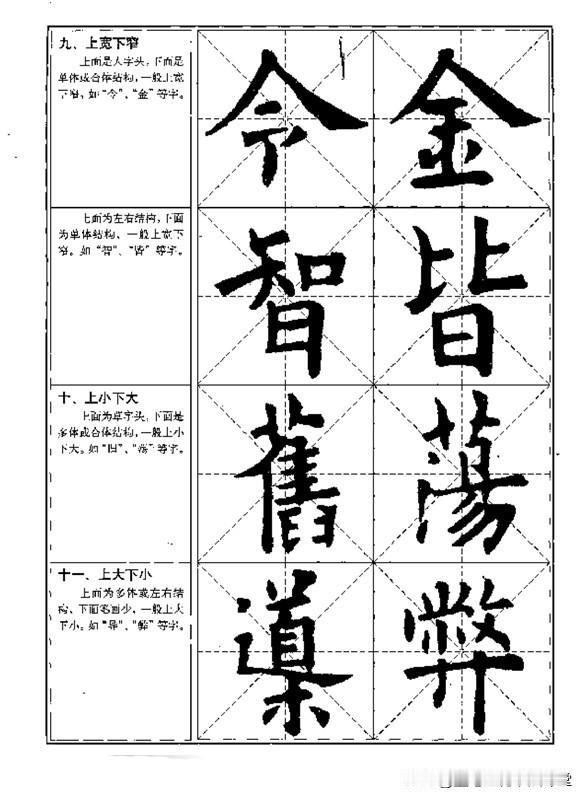 九、上宽下窄
上面是人字头，下面是
单体或合体结构，一般上宽
下窄。如“令”、“金”等字。
令 金
上面为左右结构，下面
为单体结构、一般上宽下
窄。如“智”、“皆”等字。
智 皆
十、上小下大
上面为草字头，下面是
多体或合体结构，一般上小
下大。如“旧”、“荡”等字。
舊 蕩
十一、上大下小
上面为多体或左右结
构、下面笔画少，一般上大
下小。如“导”、“弊”等字。
導 弊